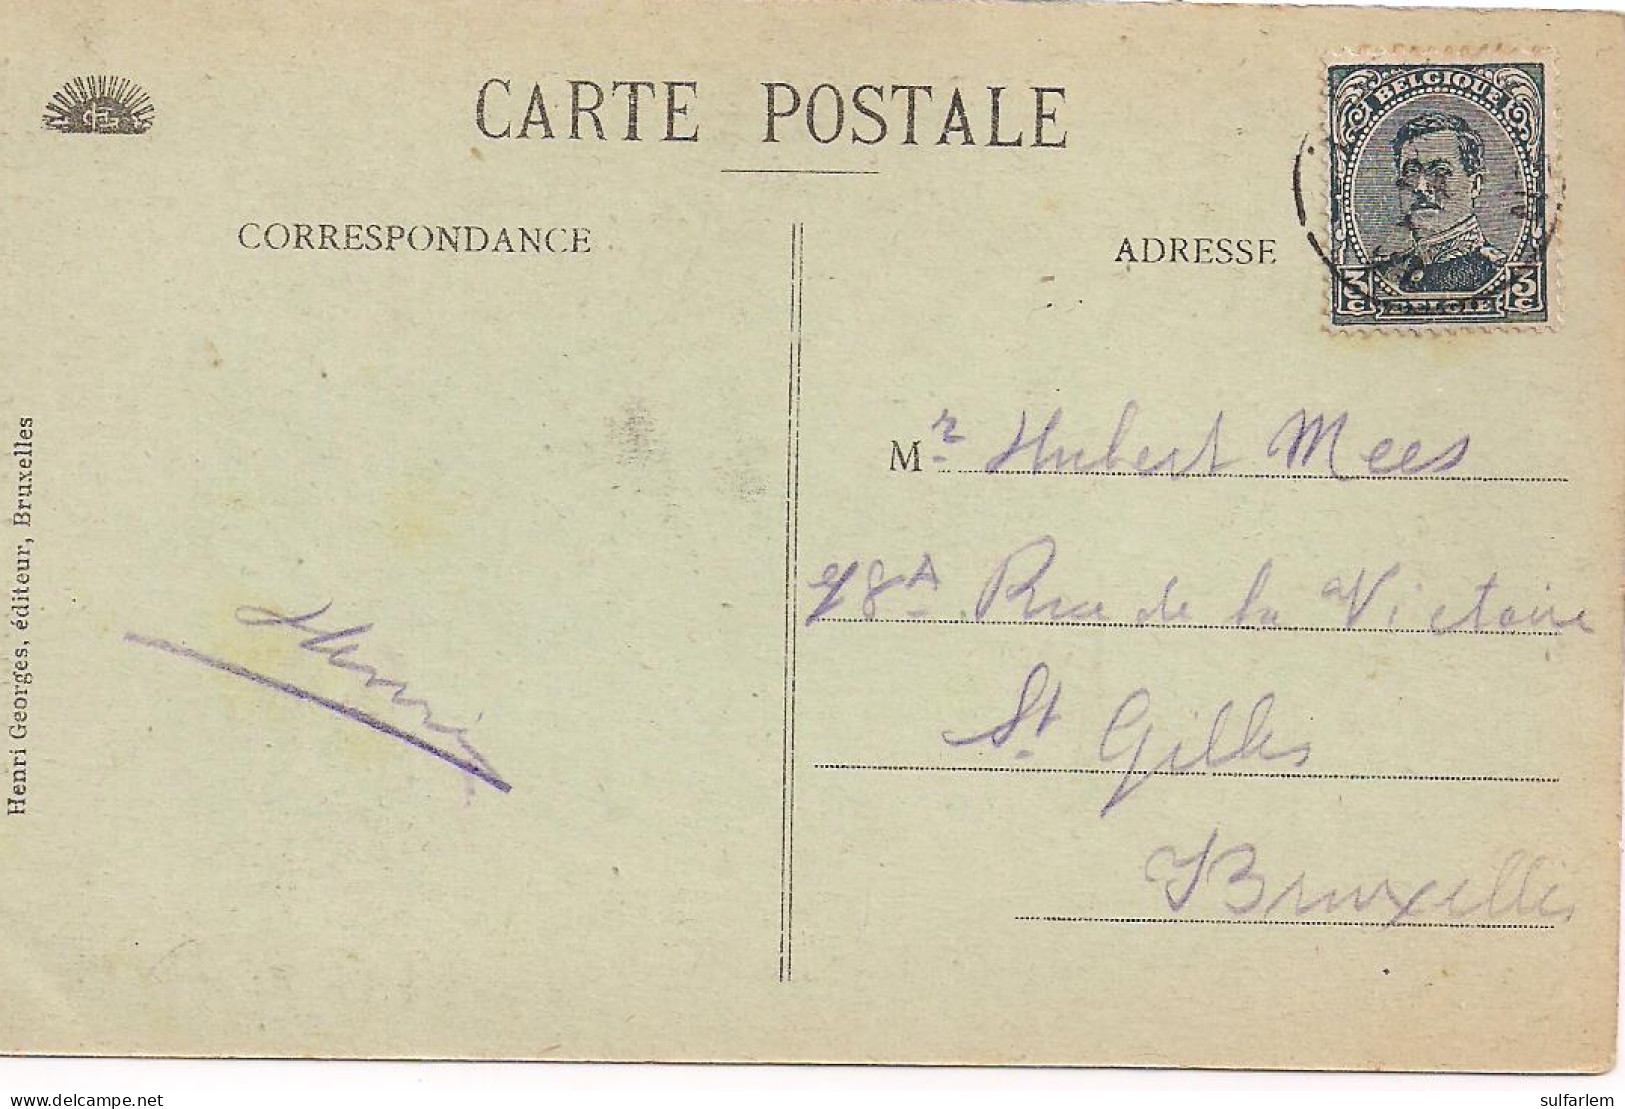 CARTE POSTALE
BELGIQUE
3C 3C
BELGIË
CORRESPONDANCE
ADRESSE
Henri Georges, éditeur, Bruxelles
Henri
Mr Hubert Mees
Rue de la Victoire
St Gilles
Bruxelles
delcampe.net
sulfarlem